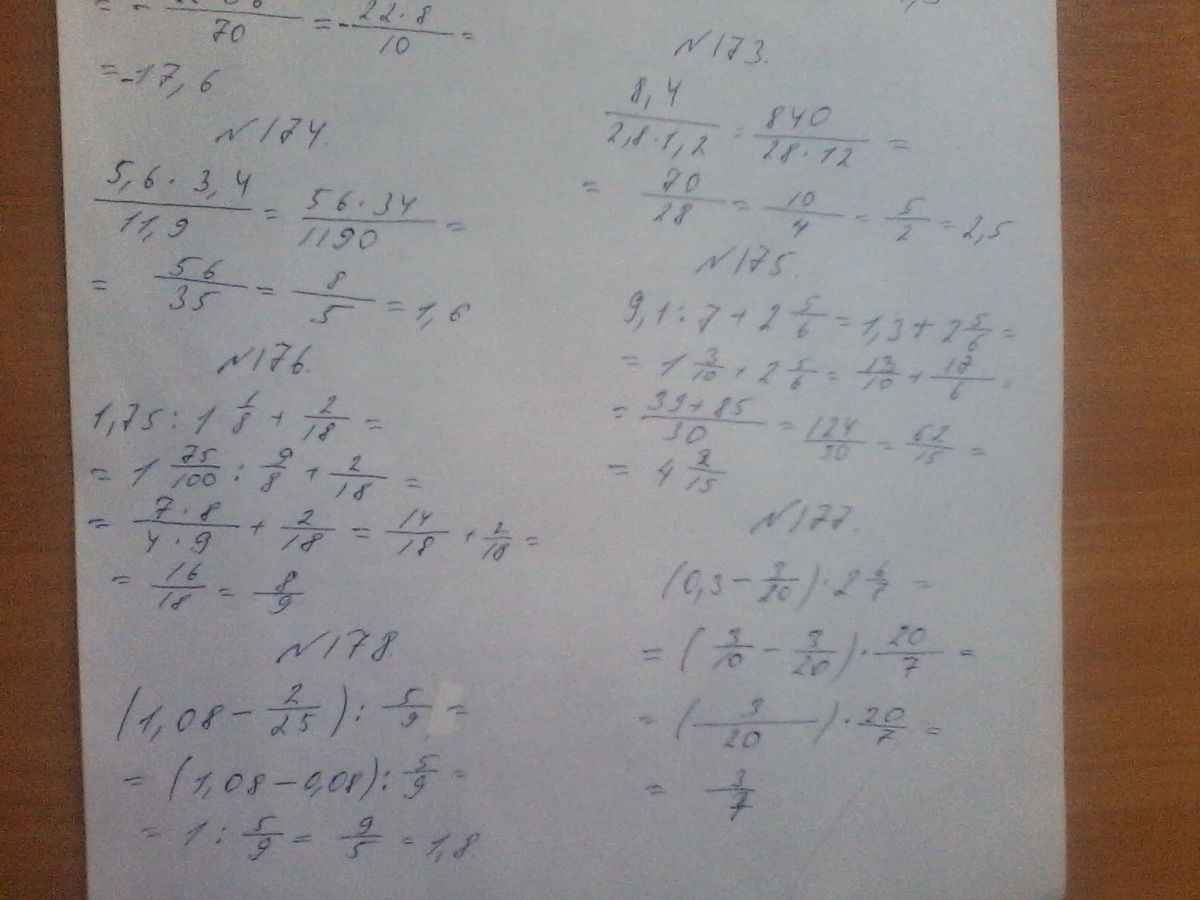 70 = - 22·8/10 =
= -17,6
N174.
5,6·3,4/11,9 = 56·34/1190 =
= 56/35 = 8/5 = 1,6
N176.
1,75 : 1 1/8 + 2/18 =
= 1 75/100 : 9/8 + 2/18 =
= 7·8/4·9 + 2/18 = 14/18 + 2/18 =
= 16/18 = 8/9
N178
(1,08 - 2/25) : 5/9 =
= (1,08 - 0,08) : 5/9 =
= 1 : 5/9 = 9/5 = 1,8.
N173.
8,4/2,8·1,2 = 840/28·12 =
= 70/28 = 10/4 = 5/2 = 2,5
N175.
9,1 : 7 + 2 5/6 = 1,3 + 2 5/6 =
= 1 3/10 + 2 5/6 = 13/10 + 17/6 =
= 39+85/30 = 124/30 = 62/15 =
= 4 2/15
N177.
(0,3 - 3/20) · 2 6/7 =
= (3/10 - 3/20) · 20/7 =
= (3/20) · 20/7 =
= 3/7